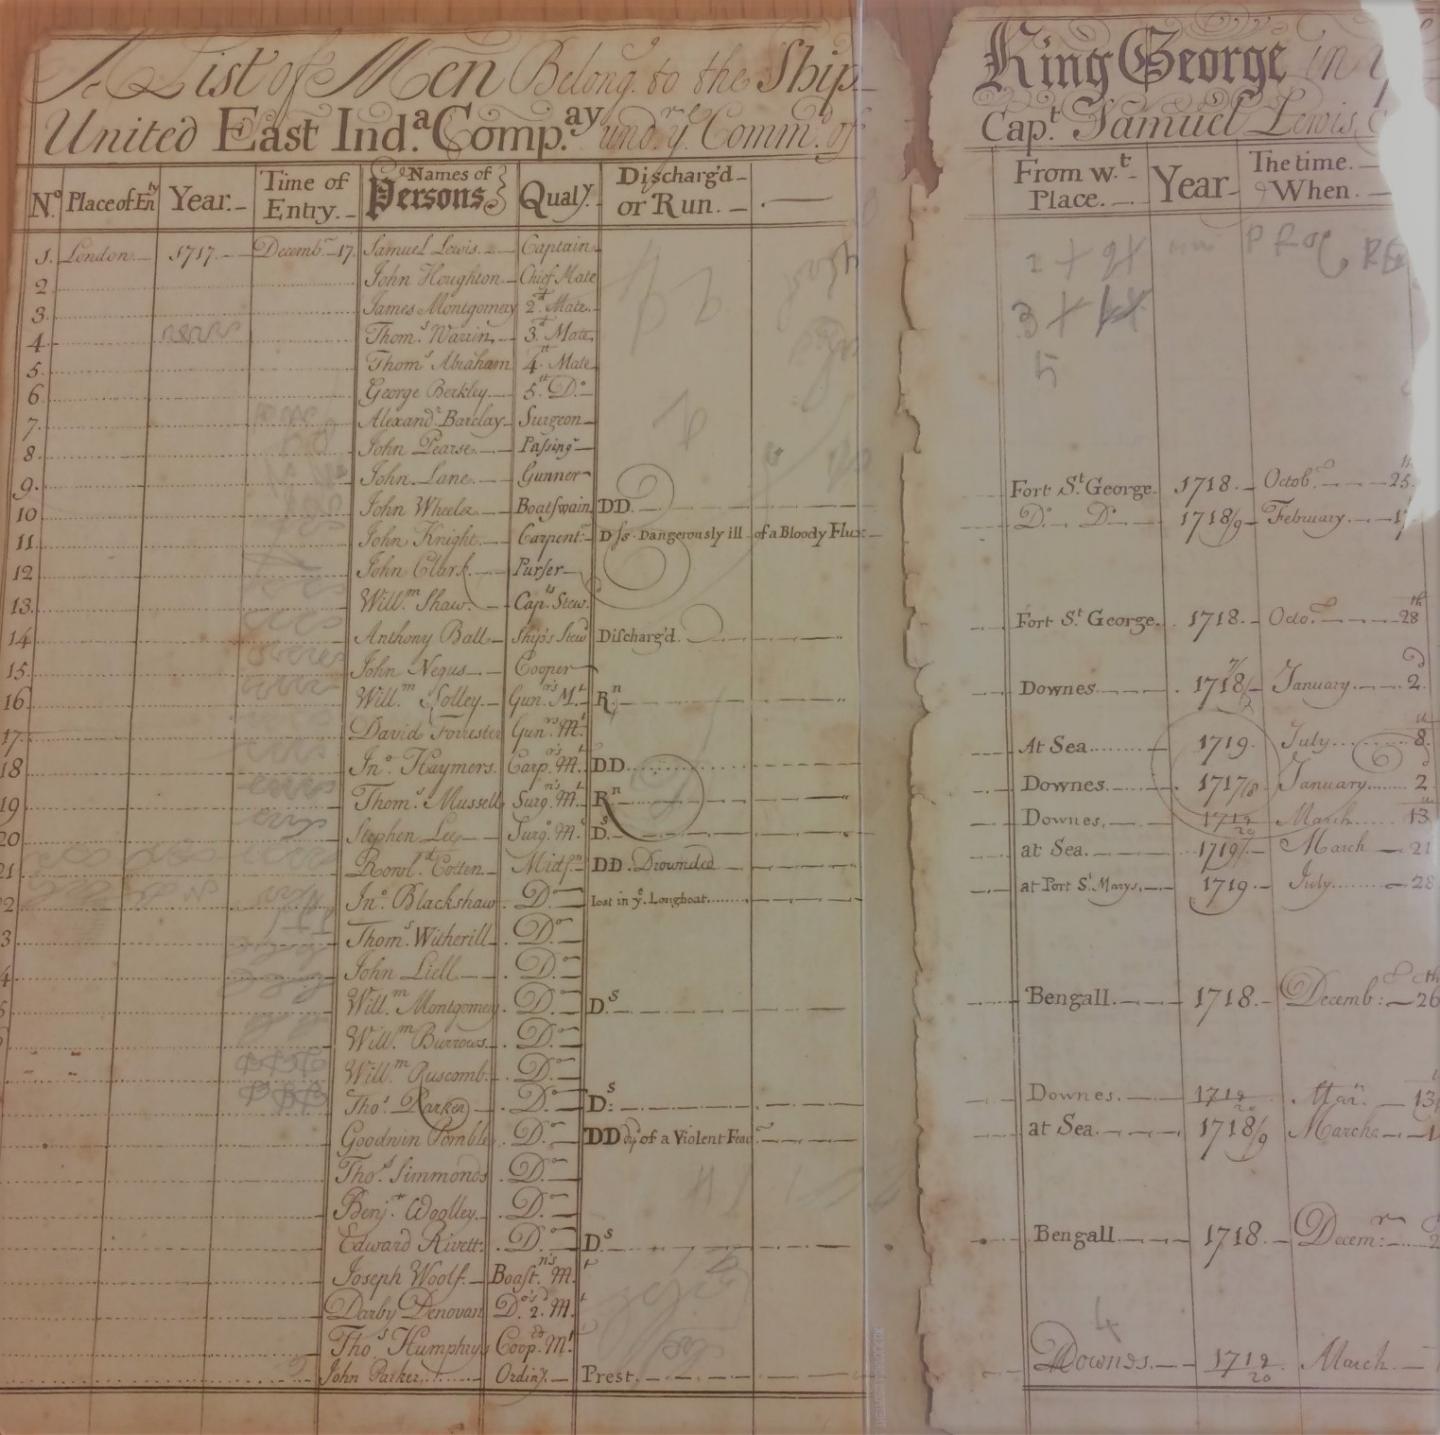 A List of Men Belong. to the Ship King George in
United East Ind.a Comp.ay und.r ye Comm.d of Cap.t Samuel Lewis
No. Place of En.ty Year. Time of Entry. Names of Persons. Qual.y Discharg'd or Run. From w.t Place. Year The time When.
1. London 1717. Decemb.r 17. Samuel Lewis. Captain
2. John Houghton Chief Mate
3. James Montgomery 2.d Mate.
4 Thom.s Warrin. 3.d Mate
5. Thom.s Abraham 4.th Mate
6. George Berkley 5.th D.o
7. Alexand.r Barclay Surgeon
8. John Pearse Passing.r
9. John Lane Gunner
10 John Wheeler Boatswain DD. Fort S.t George. 1718. Octob. 25.
11 John Knight. Carpent. Ds. Dangerously ill of a Bloody Flux D.o D.o 1718/9 February
12 John Clark Purser
13. Will.m Shaw. Cap.ts Stew.
14 Anthony Ball Ship's Stew.d Discharg'd. Fort S.t George. 1718. Octo. 28th
15. John Negus Cooper
16. Will.m Solley. Gun.rs M.t R.n Downes. January 2.d
17. David Forrester Gun.rs M.t
18 Jn.o Haymers. Carp. M.t DD At Sea 1719. July 8.
19 Thom.s Mussell Surg.ns M.t R.n Downes. 1717/18 January 2.d
20 Stephen Lee Surg.s M.t D.s Downes, 1719/20 March 13
21 Rowl.d Cotten. Mids.n DD. Drownded at Sea. 1719/ March 21
2 Jn.o Blackshaw D.o lost in ye Longboat at Port S.t Marys. 1719 July 28
3 Thom.s Witherill D.o
4 John Liell D.o
5 Will.m Montgomery D.o D.s Bengall. 1718. Decemb: 26
Will.m Burrows. D.o
Will.m Ruscomb. D.o
Tho.s Parker D.o D.s Downes. 1719/20 Mar. 13
Goodwin Pomble D.o DD of a Violent Feav.r at Sea. 1718/9 March
Tho.s Simmonds D.o
Benj.n Woolley. D.o
Edward Rivett: D.o D.s Bengall 1718. Decem.r
Joseph Woolf. Boast.ns M.t
Darby Denovan D.o's 2.d M.t
Tho.s Humphrys Coop.rs M.t
John Parker Ordin.y. Prest. Downes. 1719/20 March.